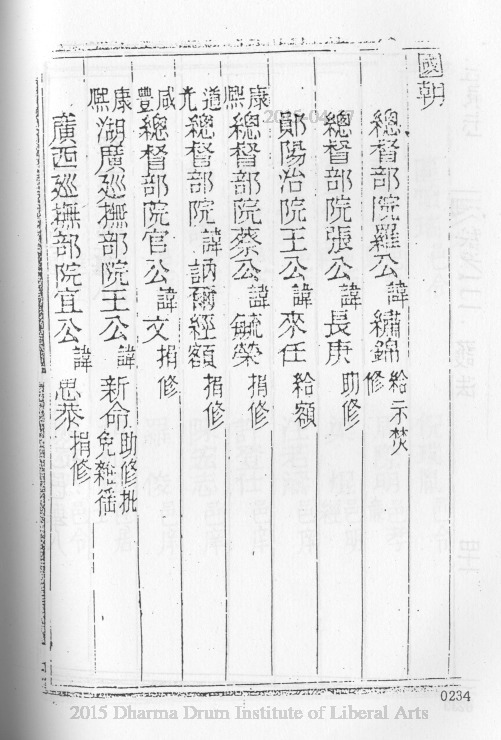 國朝
總督部院羅公諱繡錦給示焚修
總督部院張公諱長庚助修
鄖陽治院王公諱來任給額
康熙總督部院蔡公諱毓榮捐修
道光總督部院諱訥爾經額捐修
咸豐總督部院官公諱文捐修
康熙湖廣廵撫部院王公諱新命助修批免雜徭
廣西廵撫部院宜公諱思恭捐修
0234
2015 Dharma Drum Institute of Liberal Arts